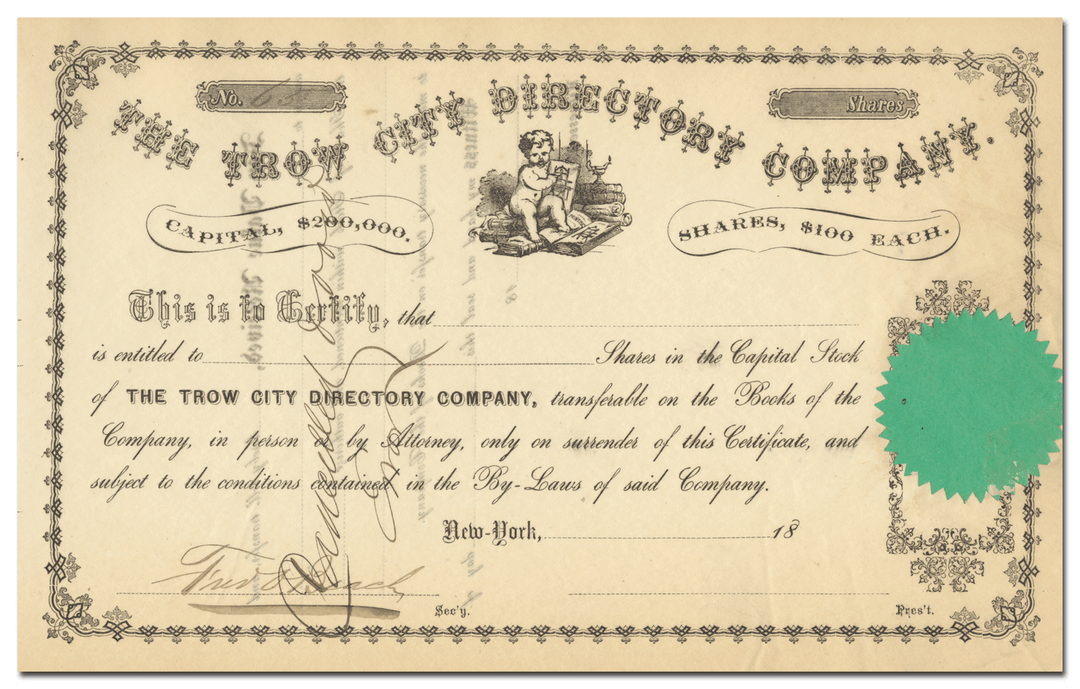 No. 65
Shares
THE TROW CITY DIRECTORY COMPANY.
CAPITAL, $200,000.
SHARES, $100 EACH.
This is to Certify, that
is entitled to Shares in the Capital Stock
of THE TROW CITY DIRECTORY COMPANY, transferable on the Books of the
Company, in person or by Attorney, only on surrender of this Certificate, and
subject to the conditions contained in the By-Laws of said Company.
New-York, 18
Sec'y.
Pres't.